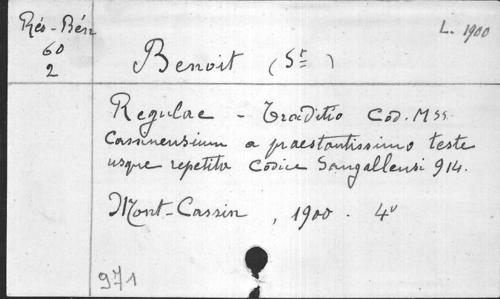 Rés-Bén
60
2
L. 1900
Benoit (St)
Regulae - Traditio Cod. Mss.
Cassinensium a praestantissimo teste
usque repetita Codice Sangallensi 914.
Mont-Cassin, 1900. 4º
971